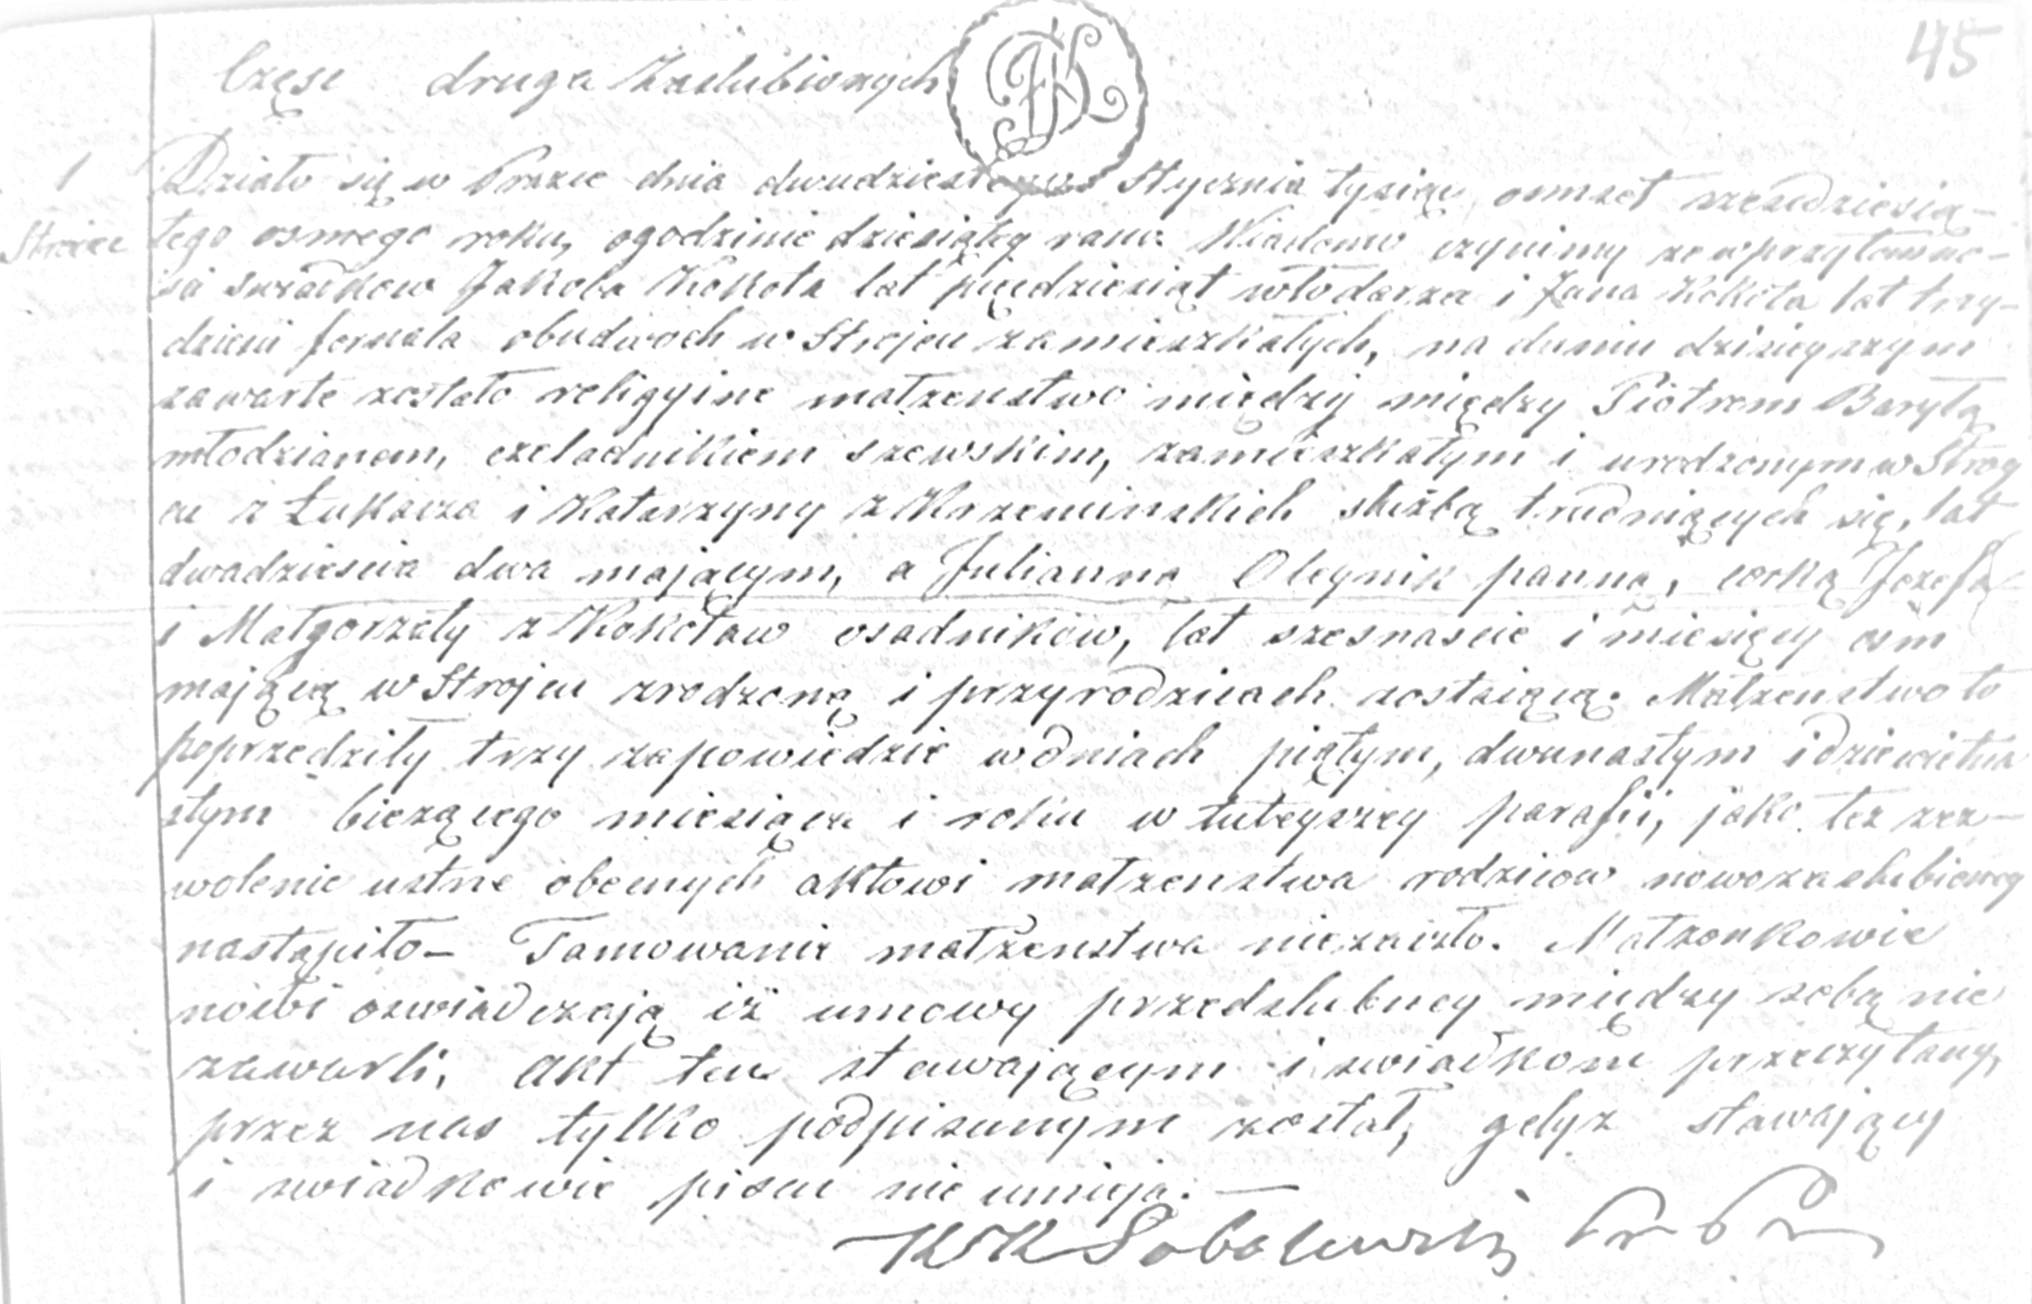 Częsc druga Zaslubionych
45
1
Strojec
Działo się w Prazce dnia dwudziestego Stycznia tysiąc osmset szescdziesią-
tego osmego roku, ogodzinie dziesiątey rano. Wiadomo czynimy ze wprzytomno-
sci swiadkow Jakoba Kokota lat pięcdziesiąt włodarza i Jana Kokota lat trzy-
dziesci fornala obudwoch w Strojcu zamieszkałych, na dniu dzisieyszym
zawarte zostało religyine małzenstwo między między Piotrem Baryłą
młodzianem, czeladnikiem szewskim, zamieszkałym i urodzonym w Stroy
cu z Łukasza i Katarzyny z Krzeminskich słuzbą trudniących się, lat
dwadziescia dwa mającym, a Julianną Oleynik panną, corką Jozefa
i Małgorzaty z Kokotow osadników, lat szesnascie i miesięcy osm
mającą w Strojcu zrodzoną i przyrodzicach zostaiącą. Małzenstwo to
poprzedziły trzy zapowiedzie wdniach piątym, dwunastym i dziewietna
stym biezącego miesiąca i roku w tuteyszey parafii, jako tez zez-
wolenie ustne obecnych aktowi małzenstwa rodzicow nowozaslubioney
nastąpiło- Tamowanie małzenstwa niezaszło. Małzonkowie
nowi oswiadczają iż umowy przedslubney między sobą nie
zawarli, Akt ten stawającym i swiadkom przeczytany,
przez nas tylko podpisanym został, gdyz stawający
i swiadkowie pisac nie umieją. —
Sobolewski